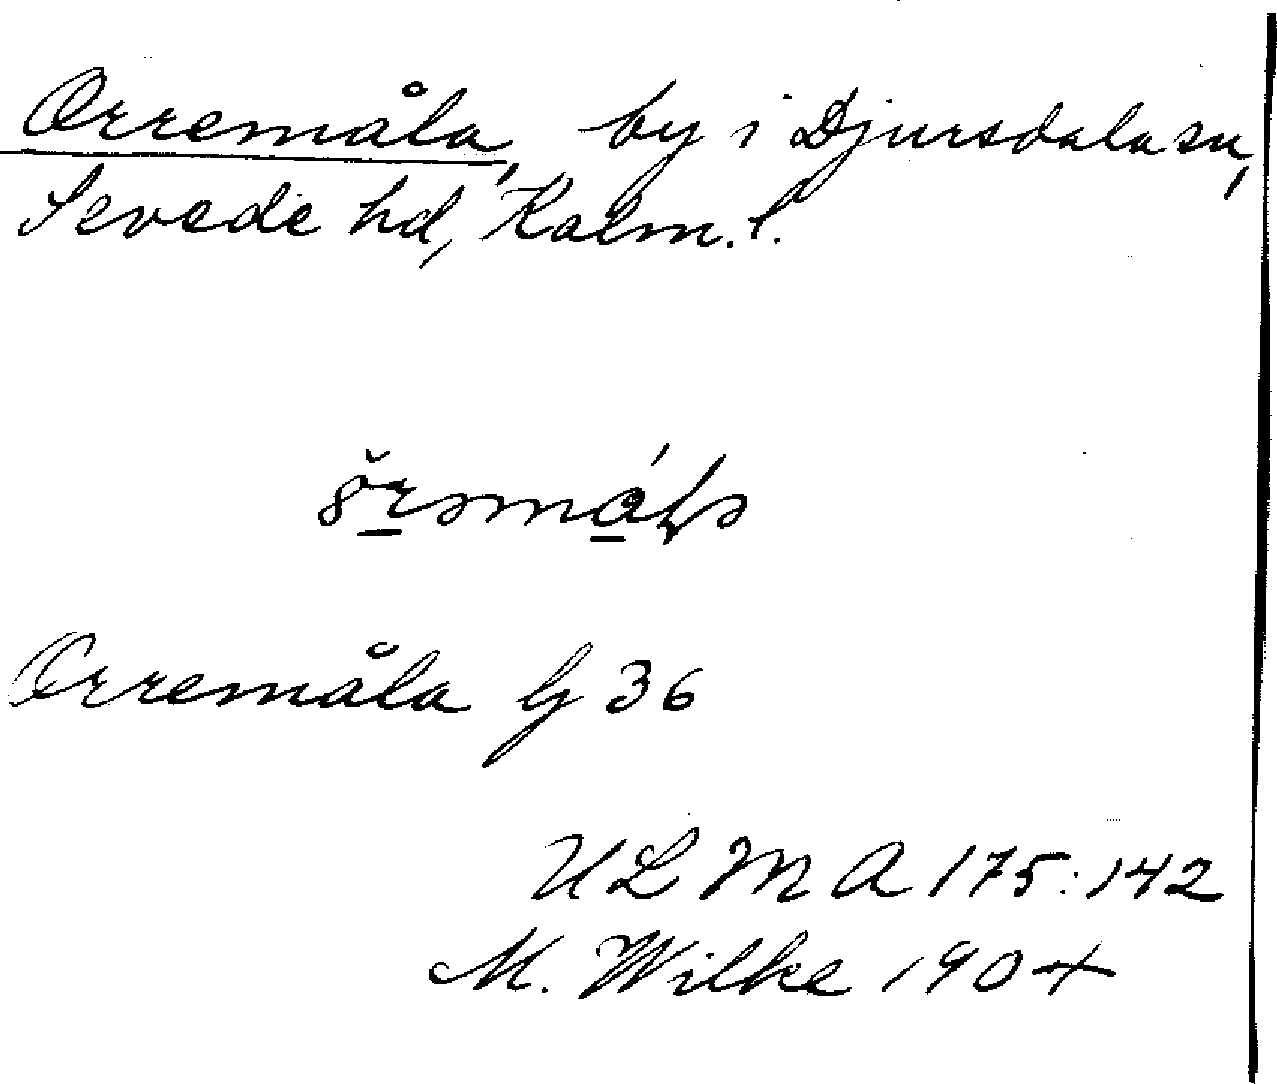 Orremåla, by i Djursdala sn,
Sevede hd, Kalm. l.
Orremåla G 36
ULMA 175:142
M. Wilke 1904